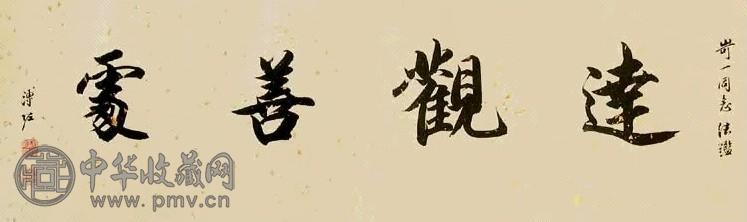 一同志 法鑑
達觀善處
溥
中华收藏网
www.pmv.cn